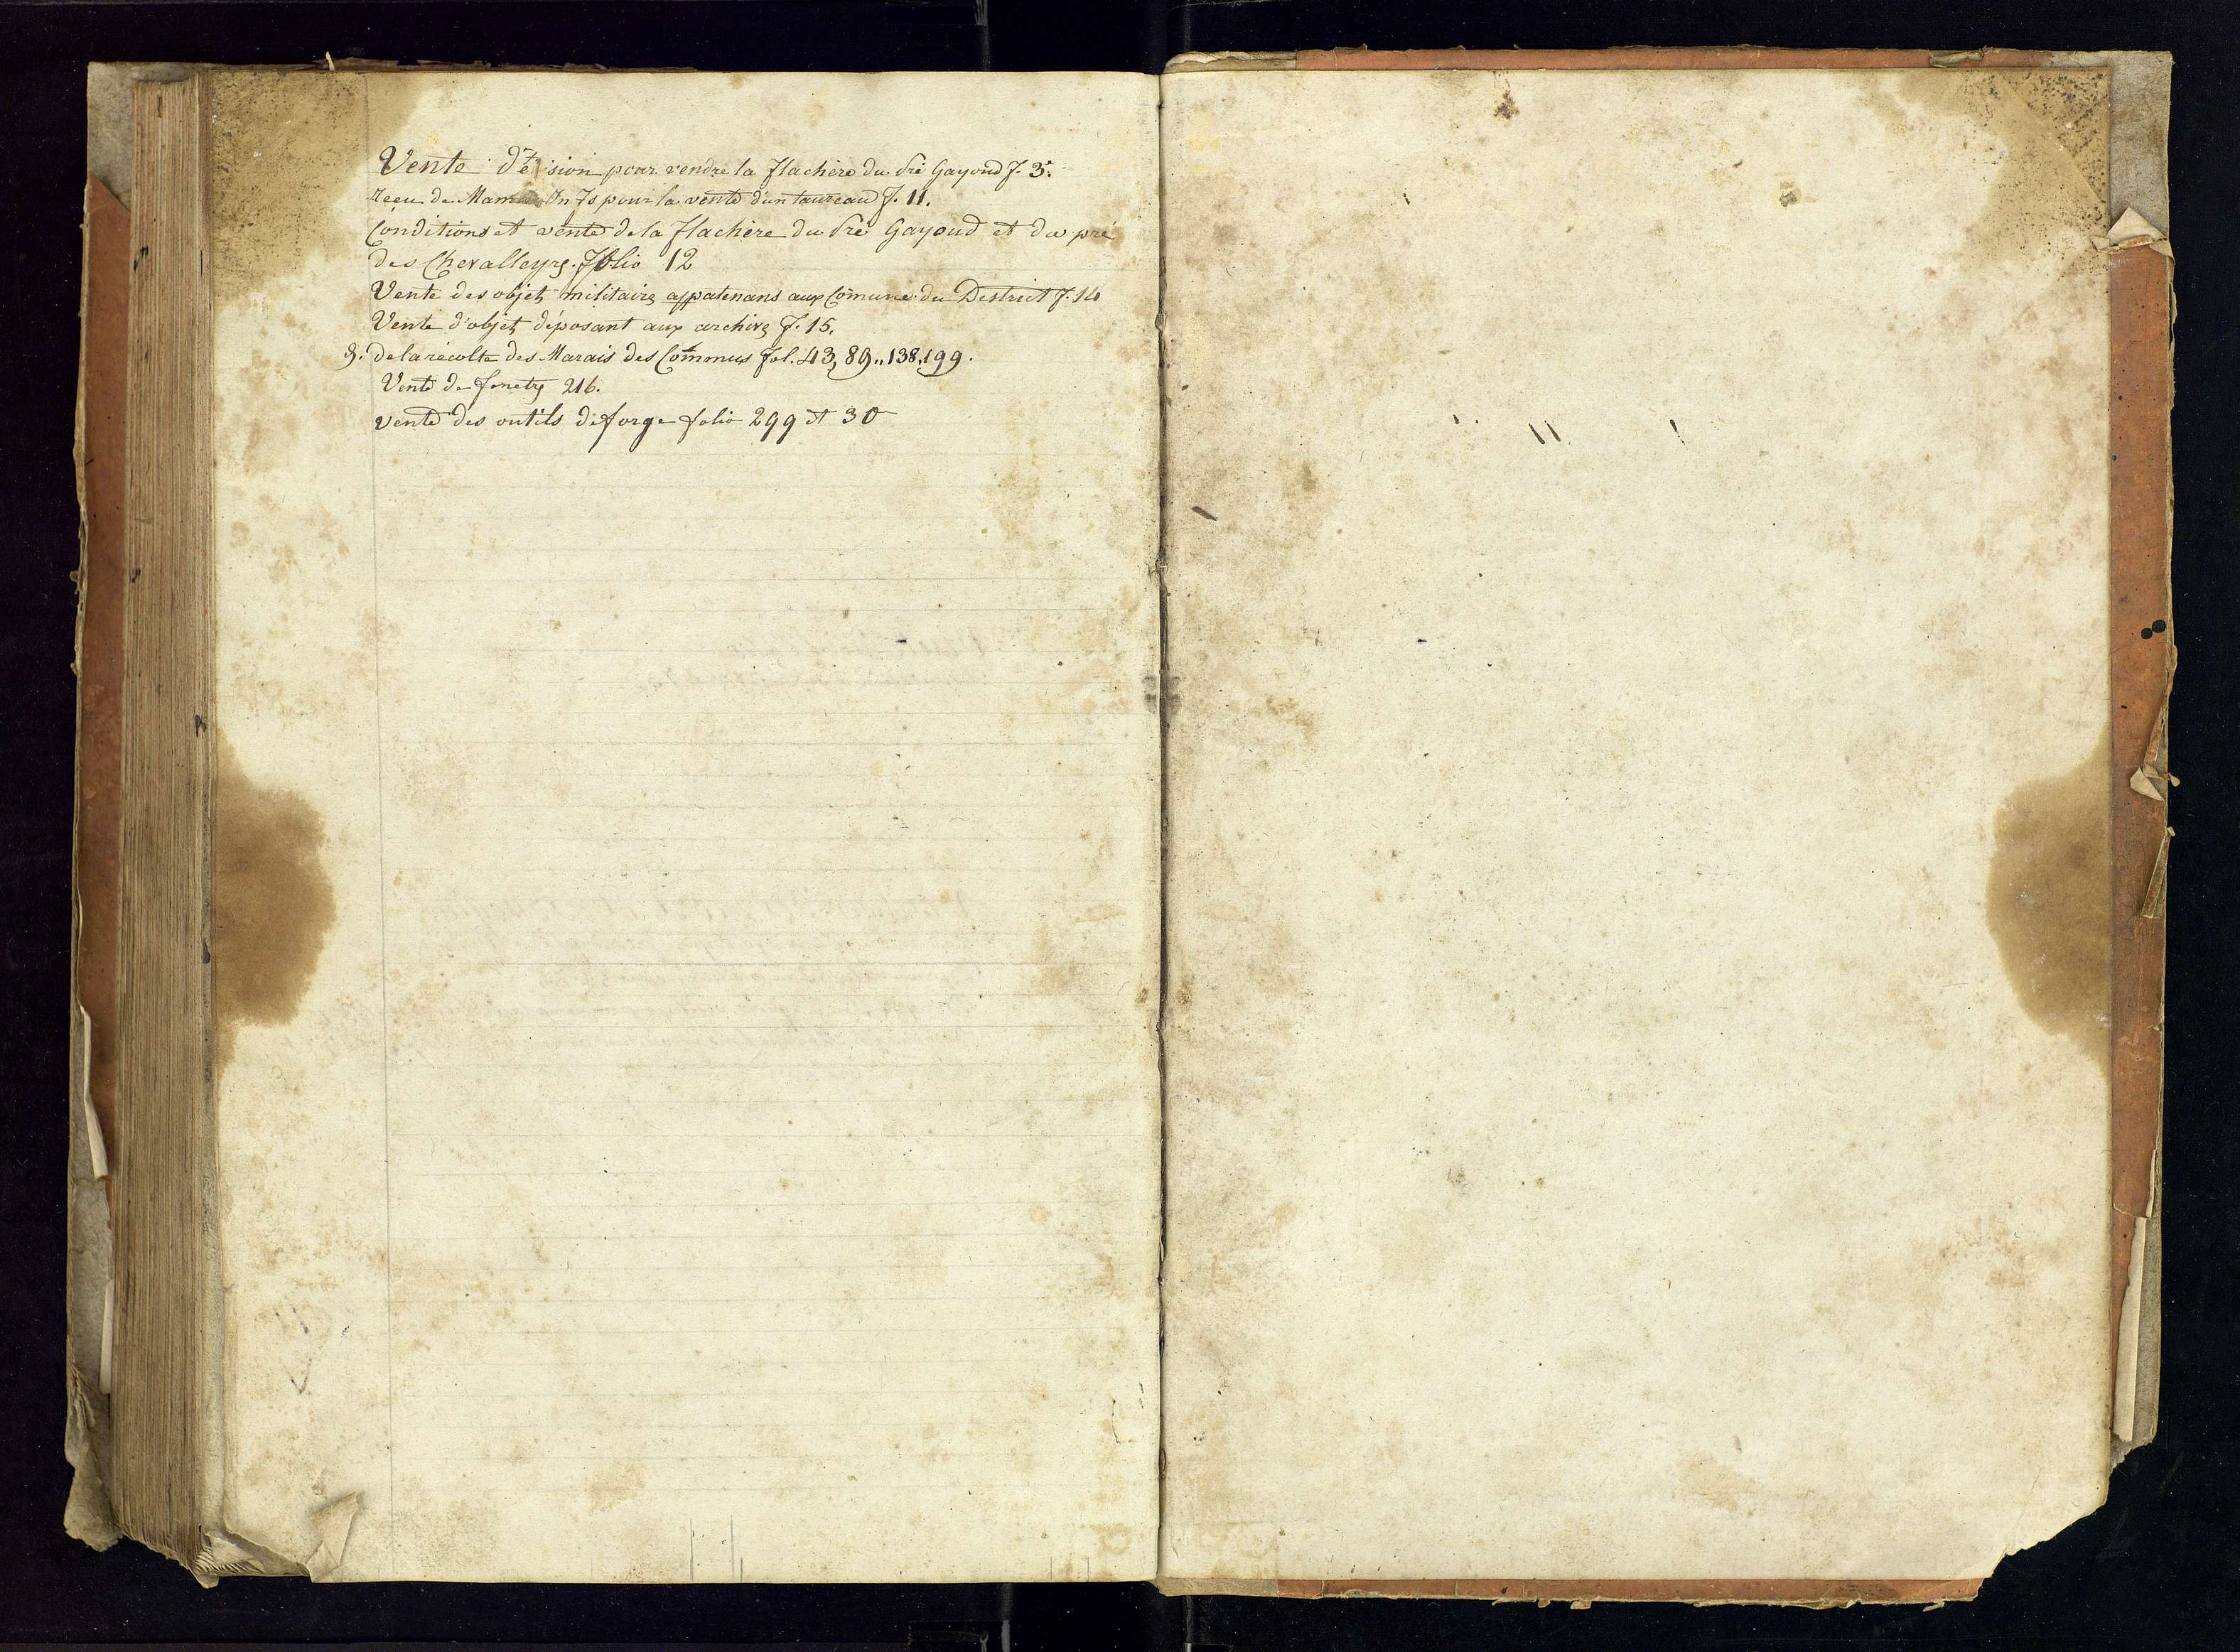 Vente Décision pour vendre la flachère du Pré Gayoud f. 3.
Reçu de pour la vente d'un taureau f. 11.
Conditions et vente de la flachère du Pré Gayoud et du pré
des Chevalleyrs. folio 12
Vente des objets militaires appatenans aux Comune du District f. 14
Vente d'objets déposant aux archives f. 15.
de la récolte des Marais des Commus fol. 43, 89., 138, 199.
Vente de fenetrs 216.
vente des outils de forge folio 299 et 30